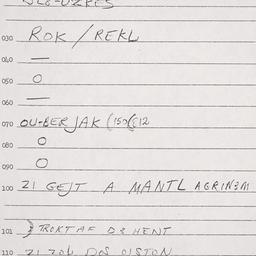 030 ROK / REKL
040 —
050 O
060 —
070 OU-BER JAK (150(C12
080 O
090 O
100 21 GEJT A MANTL AGRINEM
101 } TROKTAF DS HENT
110 21 ZOL DOS OISTON